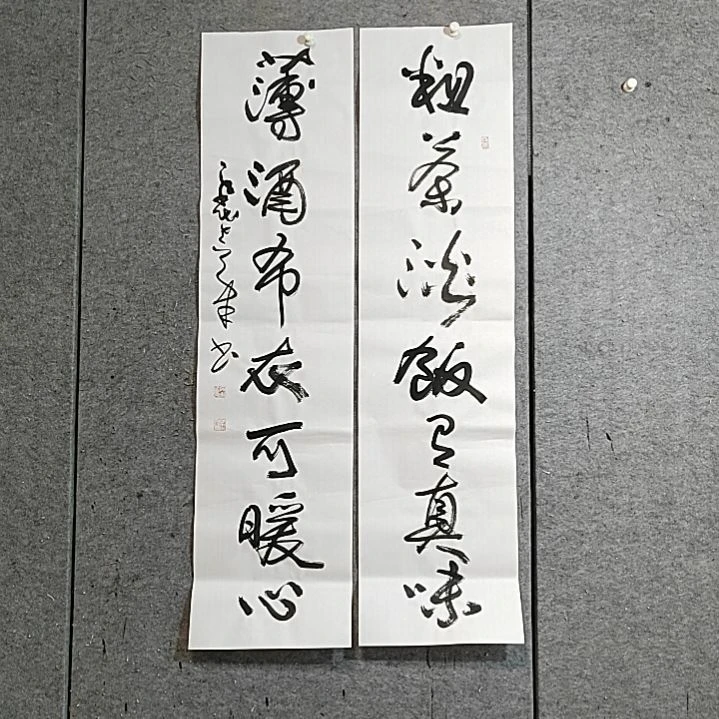 粗茶淡飯有真味
薄酒布衣可暖心
書